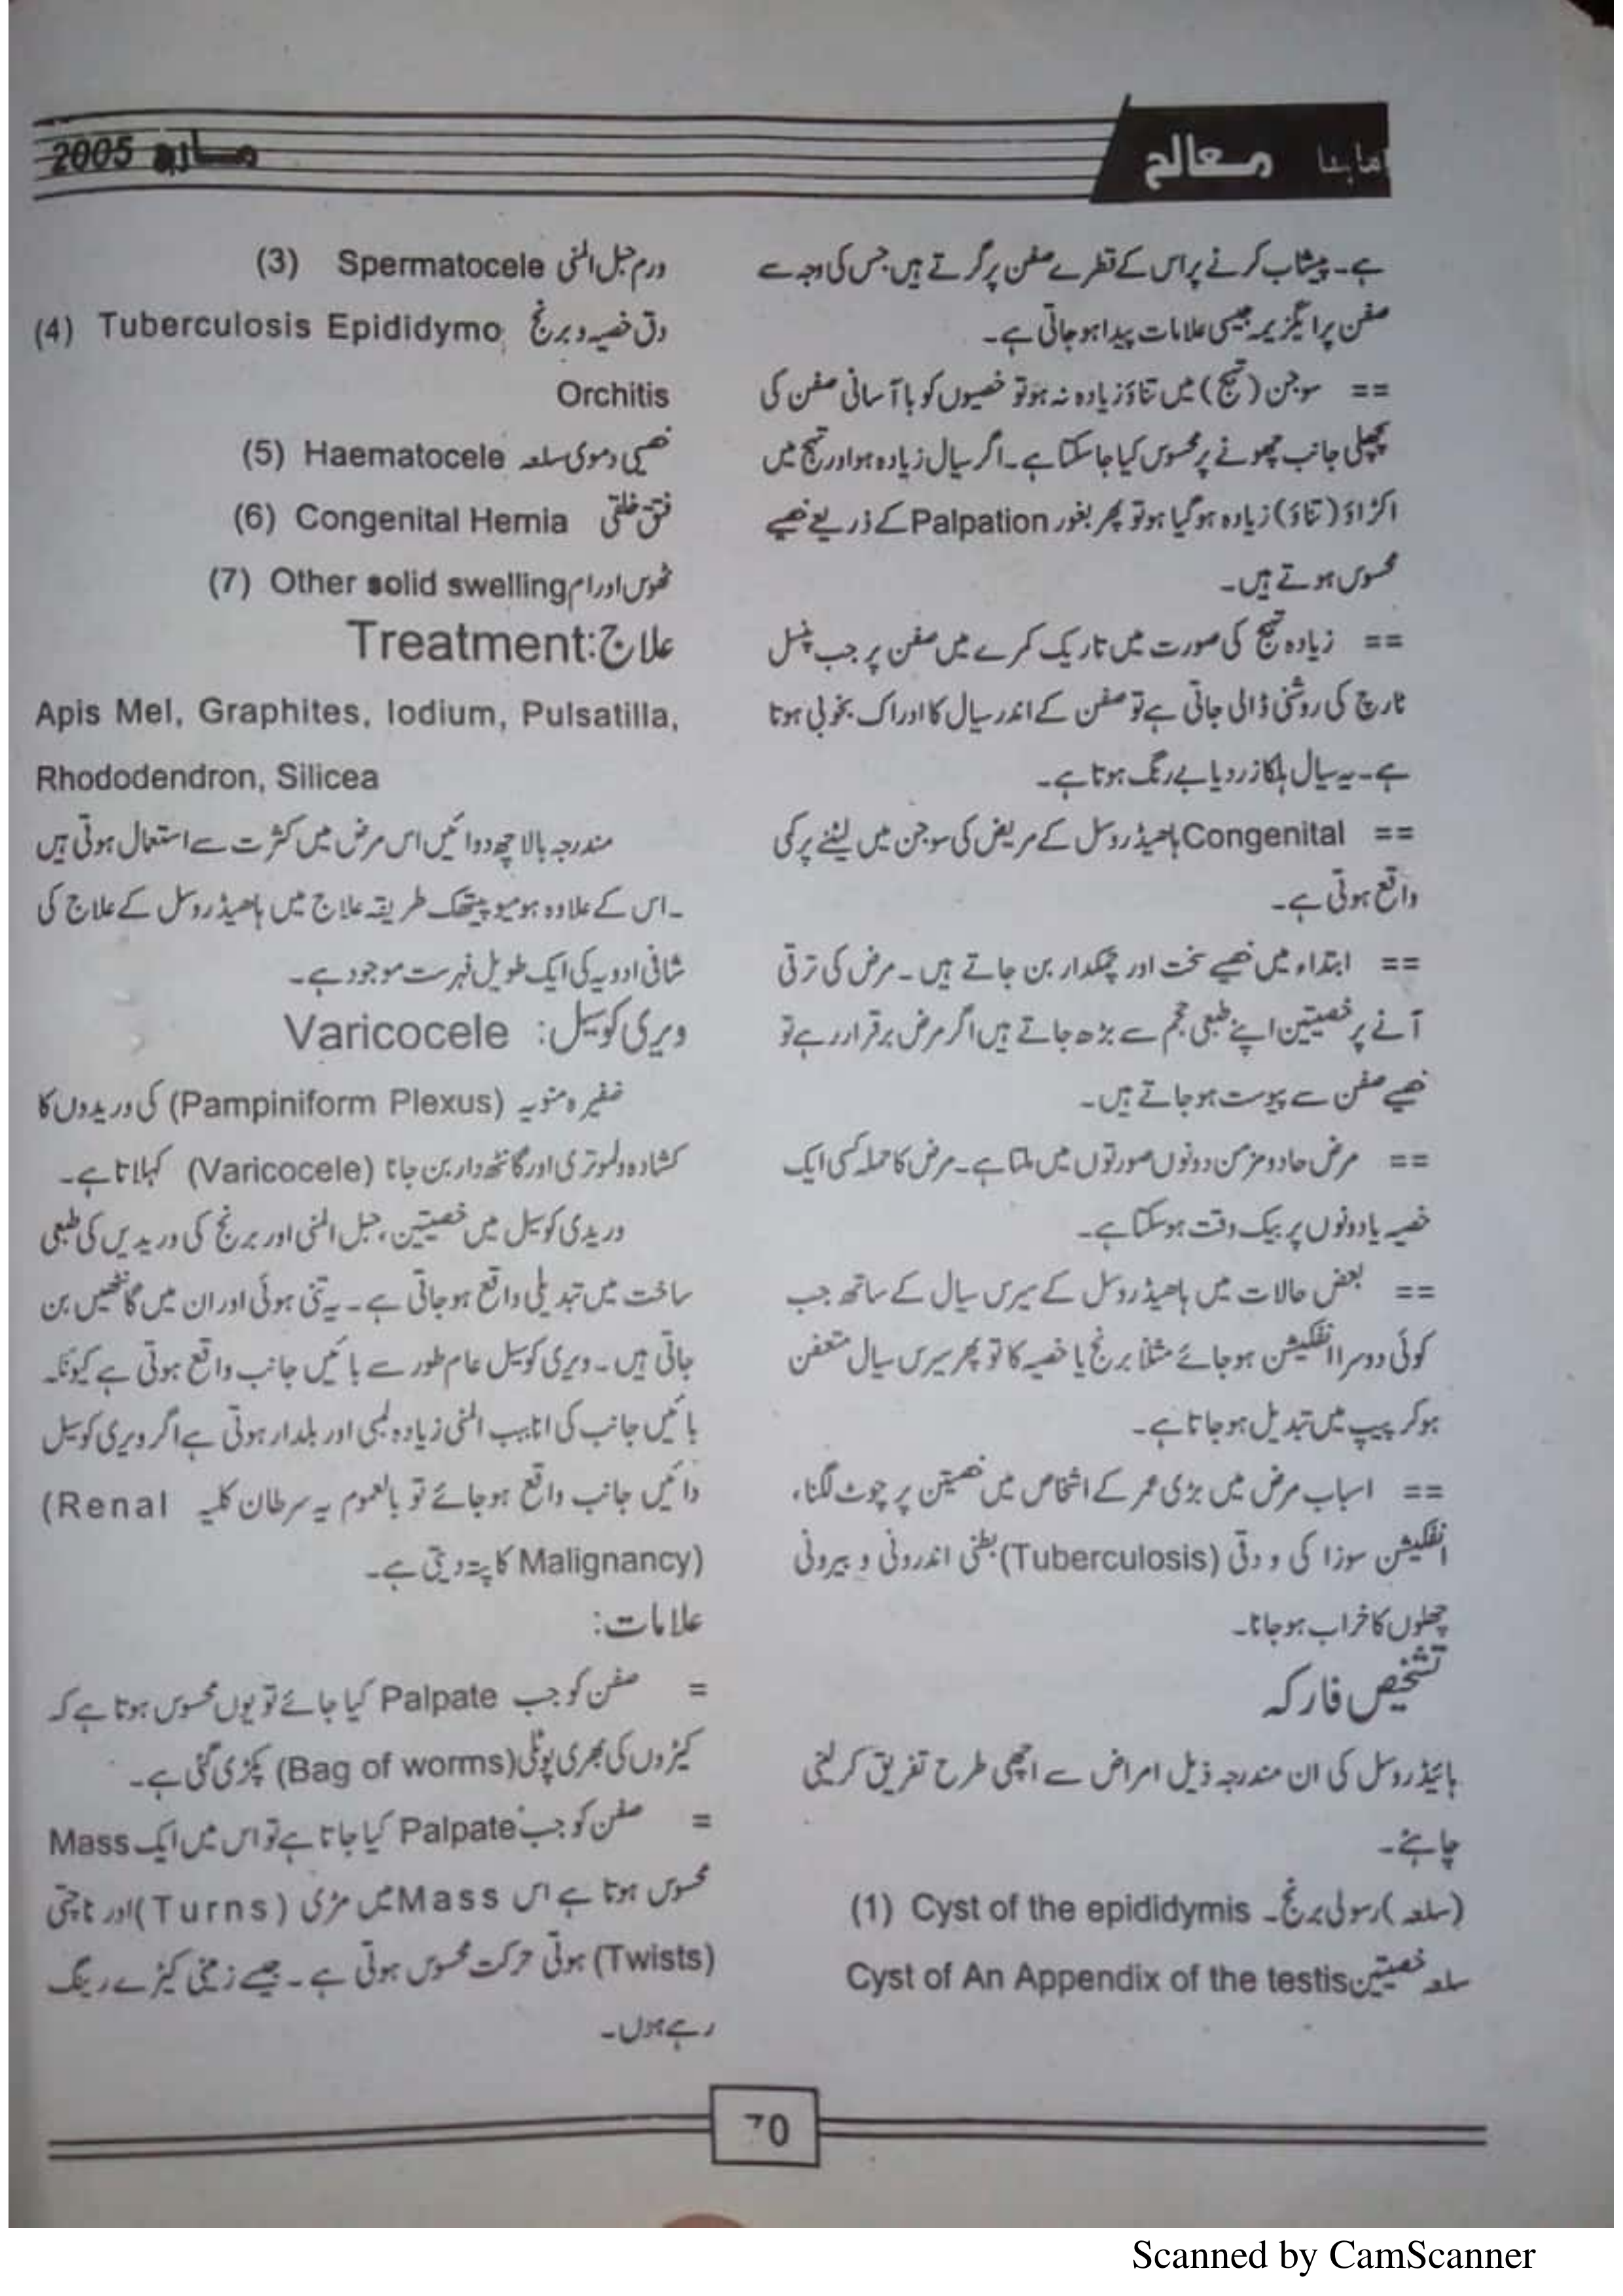 ماہنا معالج
مارچ 2005
ہے۔ پیشاب کرنے پر اس کے قطرے صفن پر گرتے ہیں جس کی وجہ سے
صفن پر ایگزیمہ جیسی علامات پیدا ہو جاتی ہے۔
== سوجن (تہیج) میں تناؤ زیادہ نہ ہو تو خصیوں کو با آسانی صفن کی
پچھلی جانب چھونے پر محسوس کیا جا سکتا ہے۔ اگر سیال زیادہ ہو اور تہیج میں
اکڑاؤ (تناؤ) زیادہ ہو گیا ہو تو پھر بغور Palpation کے ذریعے خصیے
محسوس ہوتے ہیں۔
== زیادہ تہیج کی صورت میں تاریک کمرے میں صفن پر جب پنسل
ٹارچ کی روشنی ڈالی جاتی ہے تو صفن کے اندر سیال کا ادراک بخوبی ہوتا
ہے۔ یہ سیال ہلکا زرد یا بے رنگ ہوتا ہے۔
== Congenital ہاھیڈروسل کے مریض کی سوجن میں لیٹنے پر کمی
واقع ہوتی ہے۔
== ابتداء میں خصیے سخت اور چمکدار بن جاتے ہیں۔ مرض کی ترقی
آنے پر خصیتین اپنے طبعی حجم سے بڑھ جاتے ہیں اگر مرض برقرار رہے تو
خصیے صفن سے پیوست ہو جاتے ہیں۔
== مرض حاد و مزمن دونوں صورتوں میں ملتا ہے۔ مرض کا حملہ کسی ایک
خصیہ یا دونوں پر بیک وقت ہو سکتا ہے۔
== بعض حالات میں ہاھیڈروسل کے سیرس سیال کے ساتھ جب
کوئی دوسرا انفکیشن ہو جائے مثلاً برنج یا خصیہ کا تو پھر سیرس سیال متعفن
ہو کر پیپ میں تبدیل ہو جاتا ہے۔
== اسباب مرض میں بڑی عمر کے اشخاص میں خصیتین پر چوٹ لگنا،
انفکیشن سوزا کی و دقی (Tuberculosis) بطنی اندرونی و بیرونی
چھلوں کا خراب ہو جانا۔
تشخیص فارکہ
ہائیڈروسل کی ان مندرجہ ذیل امراض سے اچھی طرح تفریق کر لینی
چاہئے۔
(1) Cyst of the epididymis ۔ رسولی برنج (سلعہ)
Cyst of An Appendix of the testis سلعہ خصیتین
(3) Spermatocele ورم حبل المنی
(4) Tuberculosis Epididymo دق خصیہ و برنج
Orchitis
(5) Haematocele خصیی دموی سلعہ
(6) Congenital Hernia فتق خلقی
(7) Other solid swelling ٹھوس اورام
علاج: Treatment
Apis Mel, Graphites, Iodium, Pulsatilla,
Rhododendron, Silicea
مندرجہ بالا چھ دوائیں اس مرض میں کثرت سے استعمال ہوتی ہیں
۔اس کے علاوہ ہومیوپیتھک طریقہ علاج میں ہاھیڈروسل کے علاج کی
شافی ادویہ کی ایک طویل فہرست موجود ہے۔
ویری کوسیل: Varicocele
ضفیرہ منویہ (Pampiniform Plexus) کی وریدوں کا
کشادہ و لموتری اور گانٹھ دار بن جانا (Varicocele) کہلاتا ہے۔
وریدی کوسیل میں خصیتین، حبل المنی اور برنج کی وریدیں کی طبعی
ساخت میں تبدیلی واقع ہو جاتی ہے۔ یہ تنی ہوئی اور ان میں گانٹھیں بن
جاتی ہیں۔ ویری کوسیل عام طور سے بائیں جانب واقع ہوتی ہے کیونکہ
بائیں جانب کی انابیب المنی زیادہ لمبی اور بلدار ہوتی ہے اگر ویری کوسیل
دائیں جانب واقع ہو جائے تو بالعموم یہ سرطان کلیہ (Renal
Malignancy) کا پتہ دیتی ہے۔
علامات:
= صفن کو جب Palpate کیا جائے تو یوں محسوس ہوتا ہے کہ
کیڑوں کی بھری پوٹلی (Bag of worms) پکڑی گئی ہے۔
= صفن کو جب Palpate کیا جاتا ہے تو اس میں ایک Mass
محسوس ہوتا ہے اس Mass میں مڑی (Turns) اور ناچتی
(Twists) ہوتی حرکت محسوس ہوتی ہے۔ جیسے زمینی کیڑے رینگ
رہے ہوں۔
70
Scanned by CamScanner